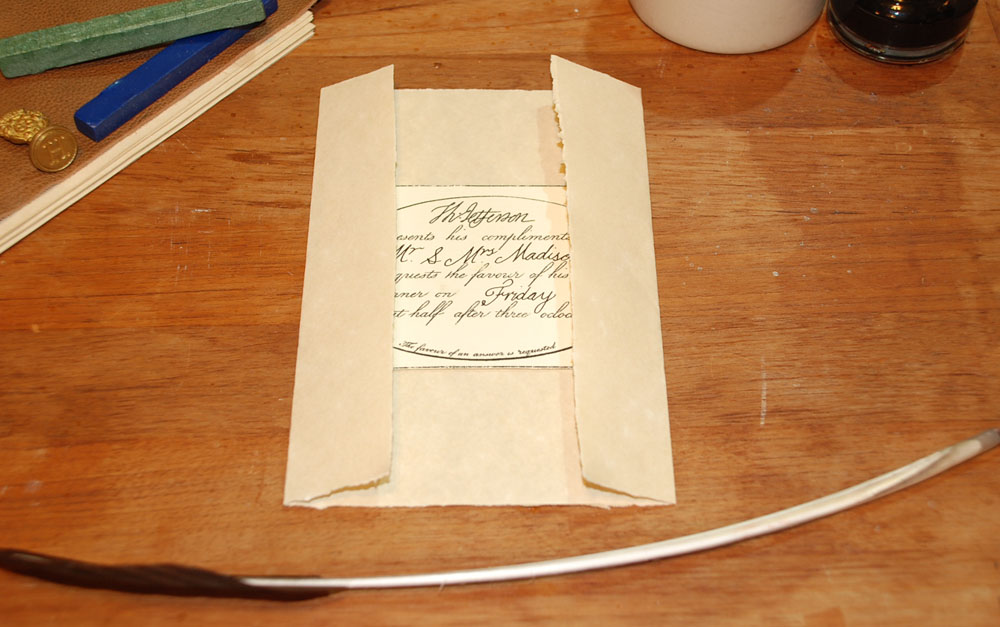 Th Jefferson
esents his compliments
Mr. & Mrs Madiso
quests the favour of his
nner on Friday
at half after three ocloc
The favour of an answer is requested